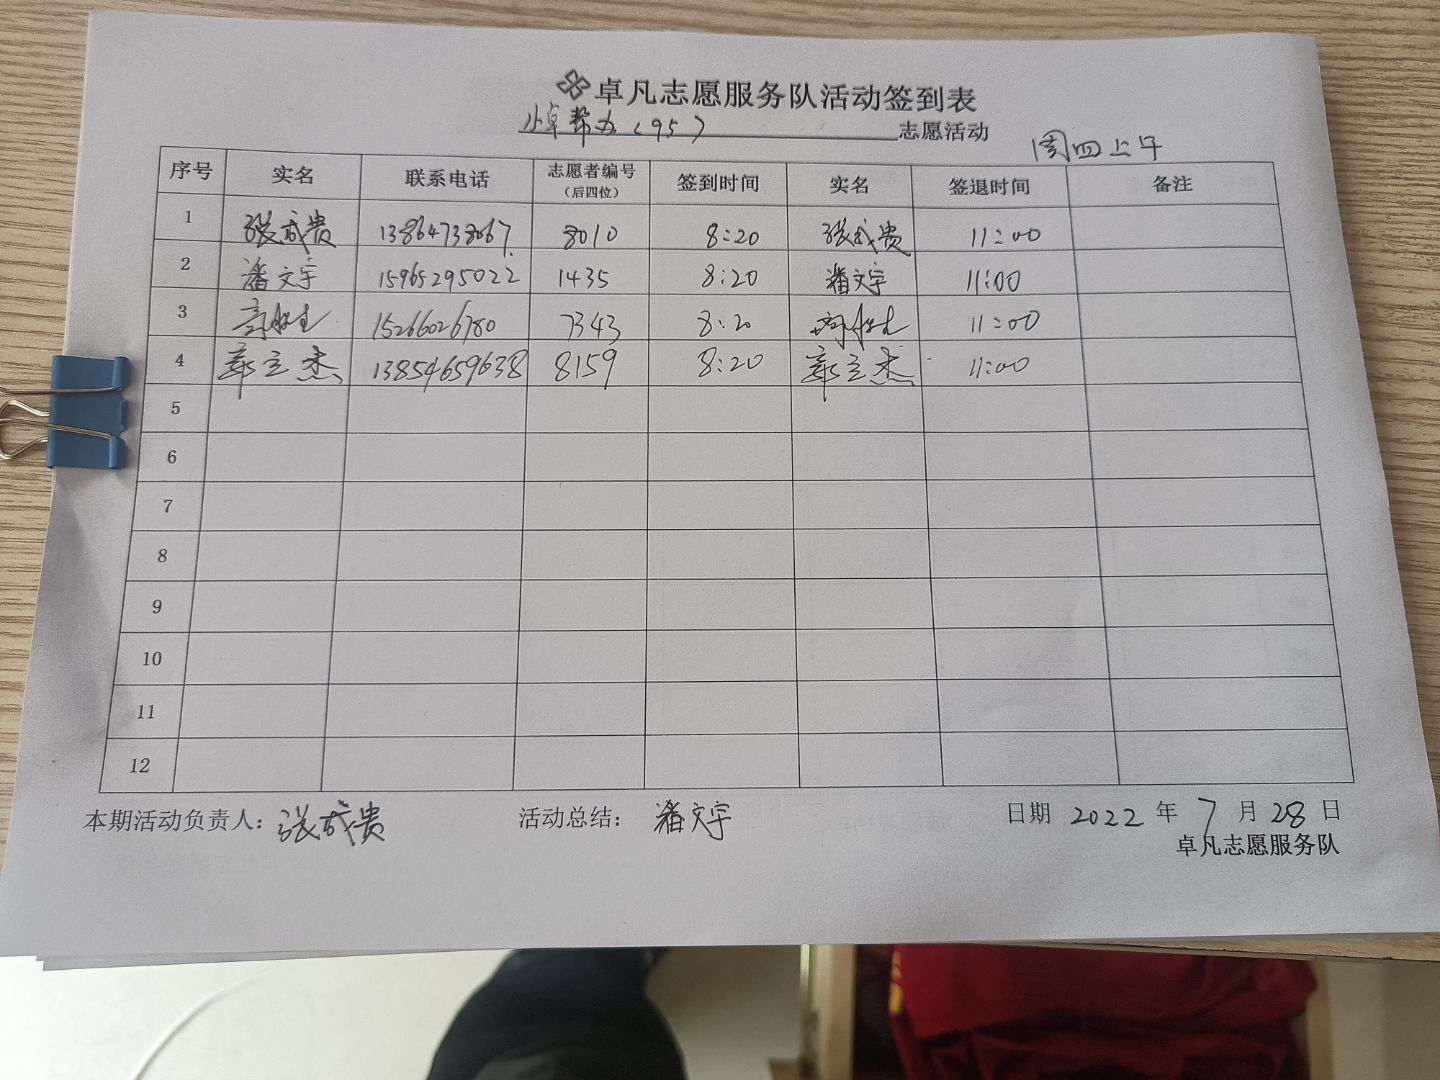 卓凡志愿服务队活动签到表
小卓帮办(95) 志愿活动 周四上午
序号 实名 联系电话 志愿者编号(后四位) 签到时间 实名 签退时间 备注
1 张成贵 13864738067 8010 8:20 张成贵 11:00
2 潘文宇 15965295022 1435 8:20 潘文宇 11:00
3 15266026780 7343 8:20 11:00
4 郭立杰 13854659638 8159 8:20 郭立杰 11:00
5
6
7
8
9
10
11
12
本期活动负责人：张成贵 活动总结：潘文宇 日期 2022 年 7 月 28 日
卓凡志愿服务队